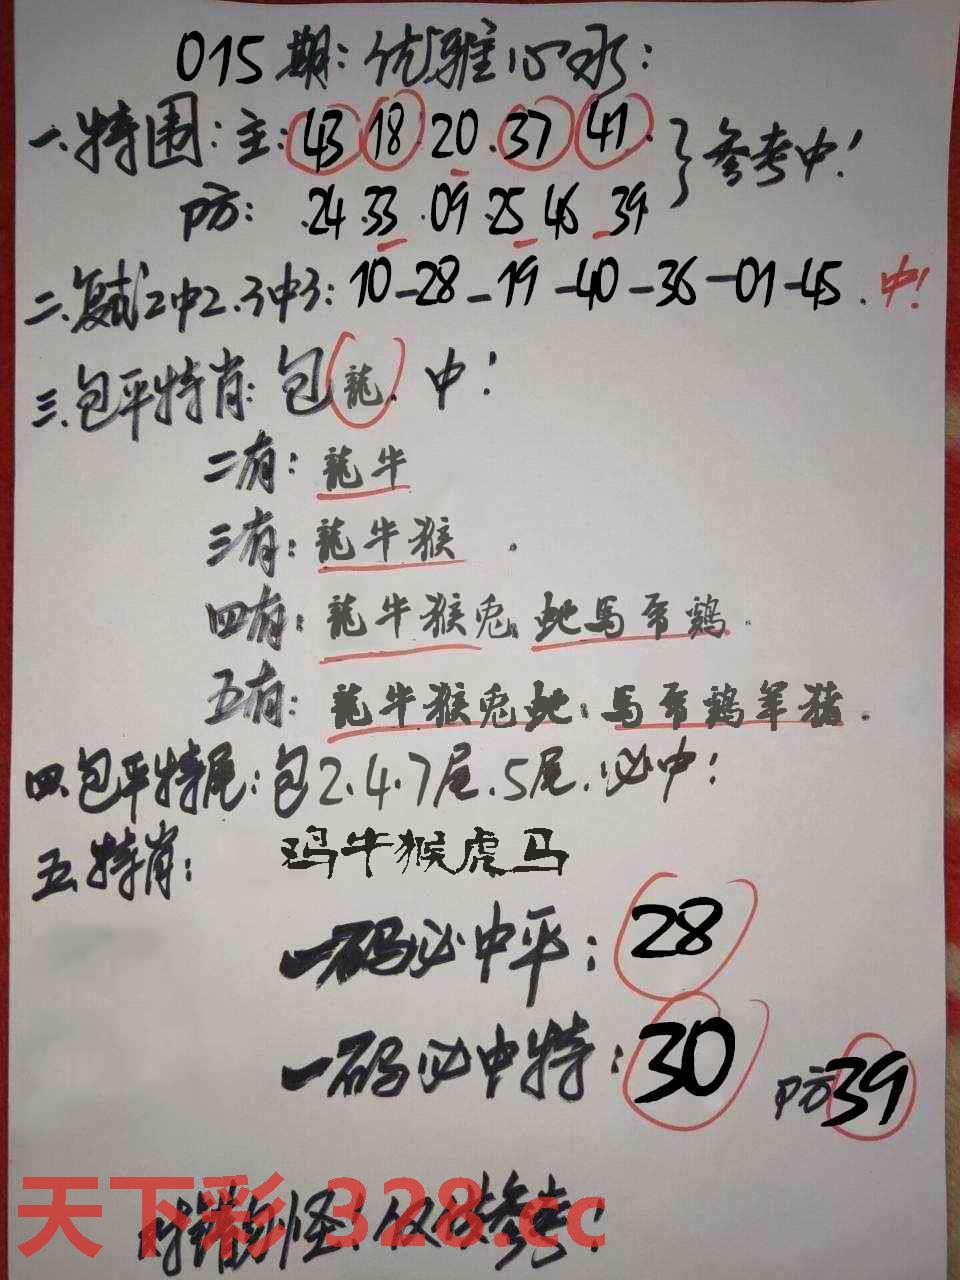 015期:优雅心水:
一.特围:主:43 18 20.37 41.
参考中!
防: .24.33.09.25 46 39
二.复式2中2.3中3:10-28-19-40-36-01-45.中!
三.包平特肖:包龍.中!
二有:龍牛
三有:龍牛猴.
四有:龍牛猴兎.蛇馬 鶏.
五有:龍牛猴兎蛇.馬 鶏羊猪.
四.包平特尾:包2.4.7尾.5尾.必中!
五.特肖: 鸡牛猴虎马
一码必中平:28
一码必中特:30 防39
对错勿怪!仅供参考!
天下彩 328.cc